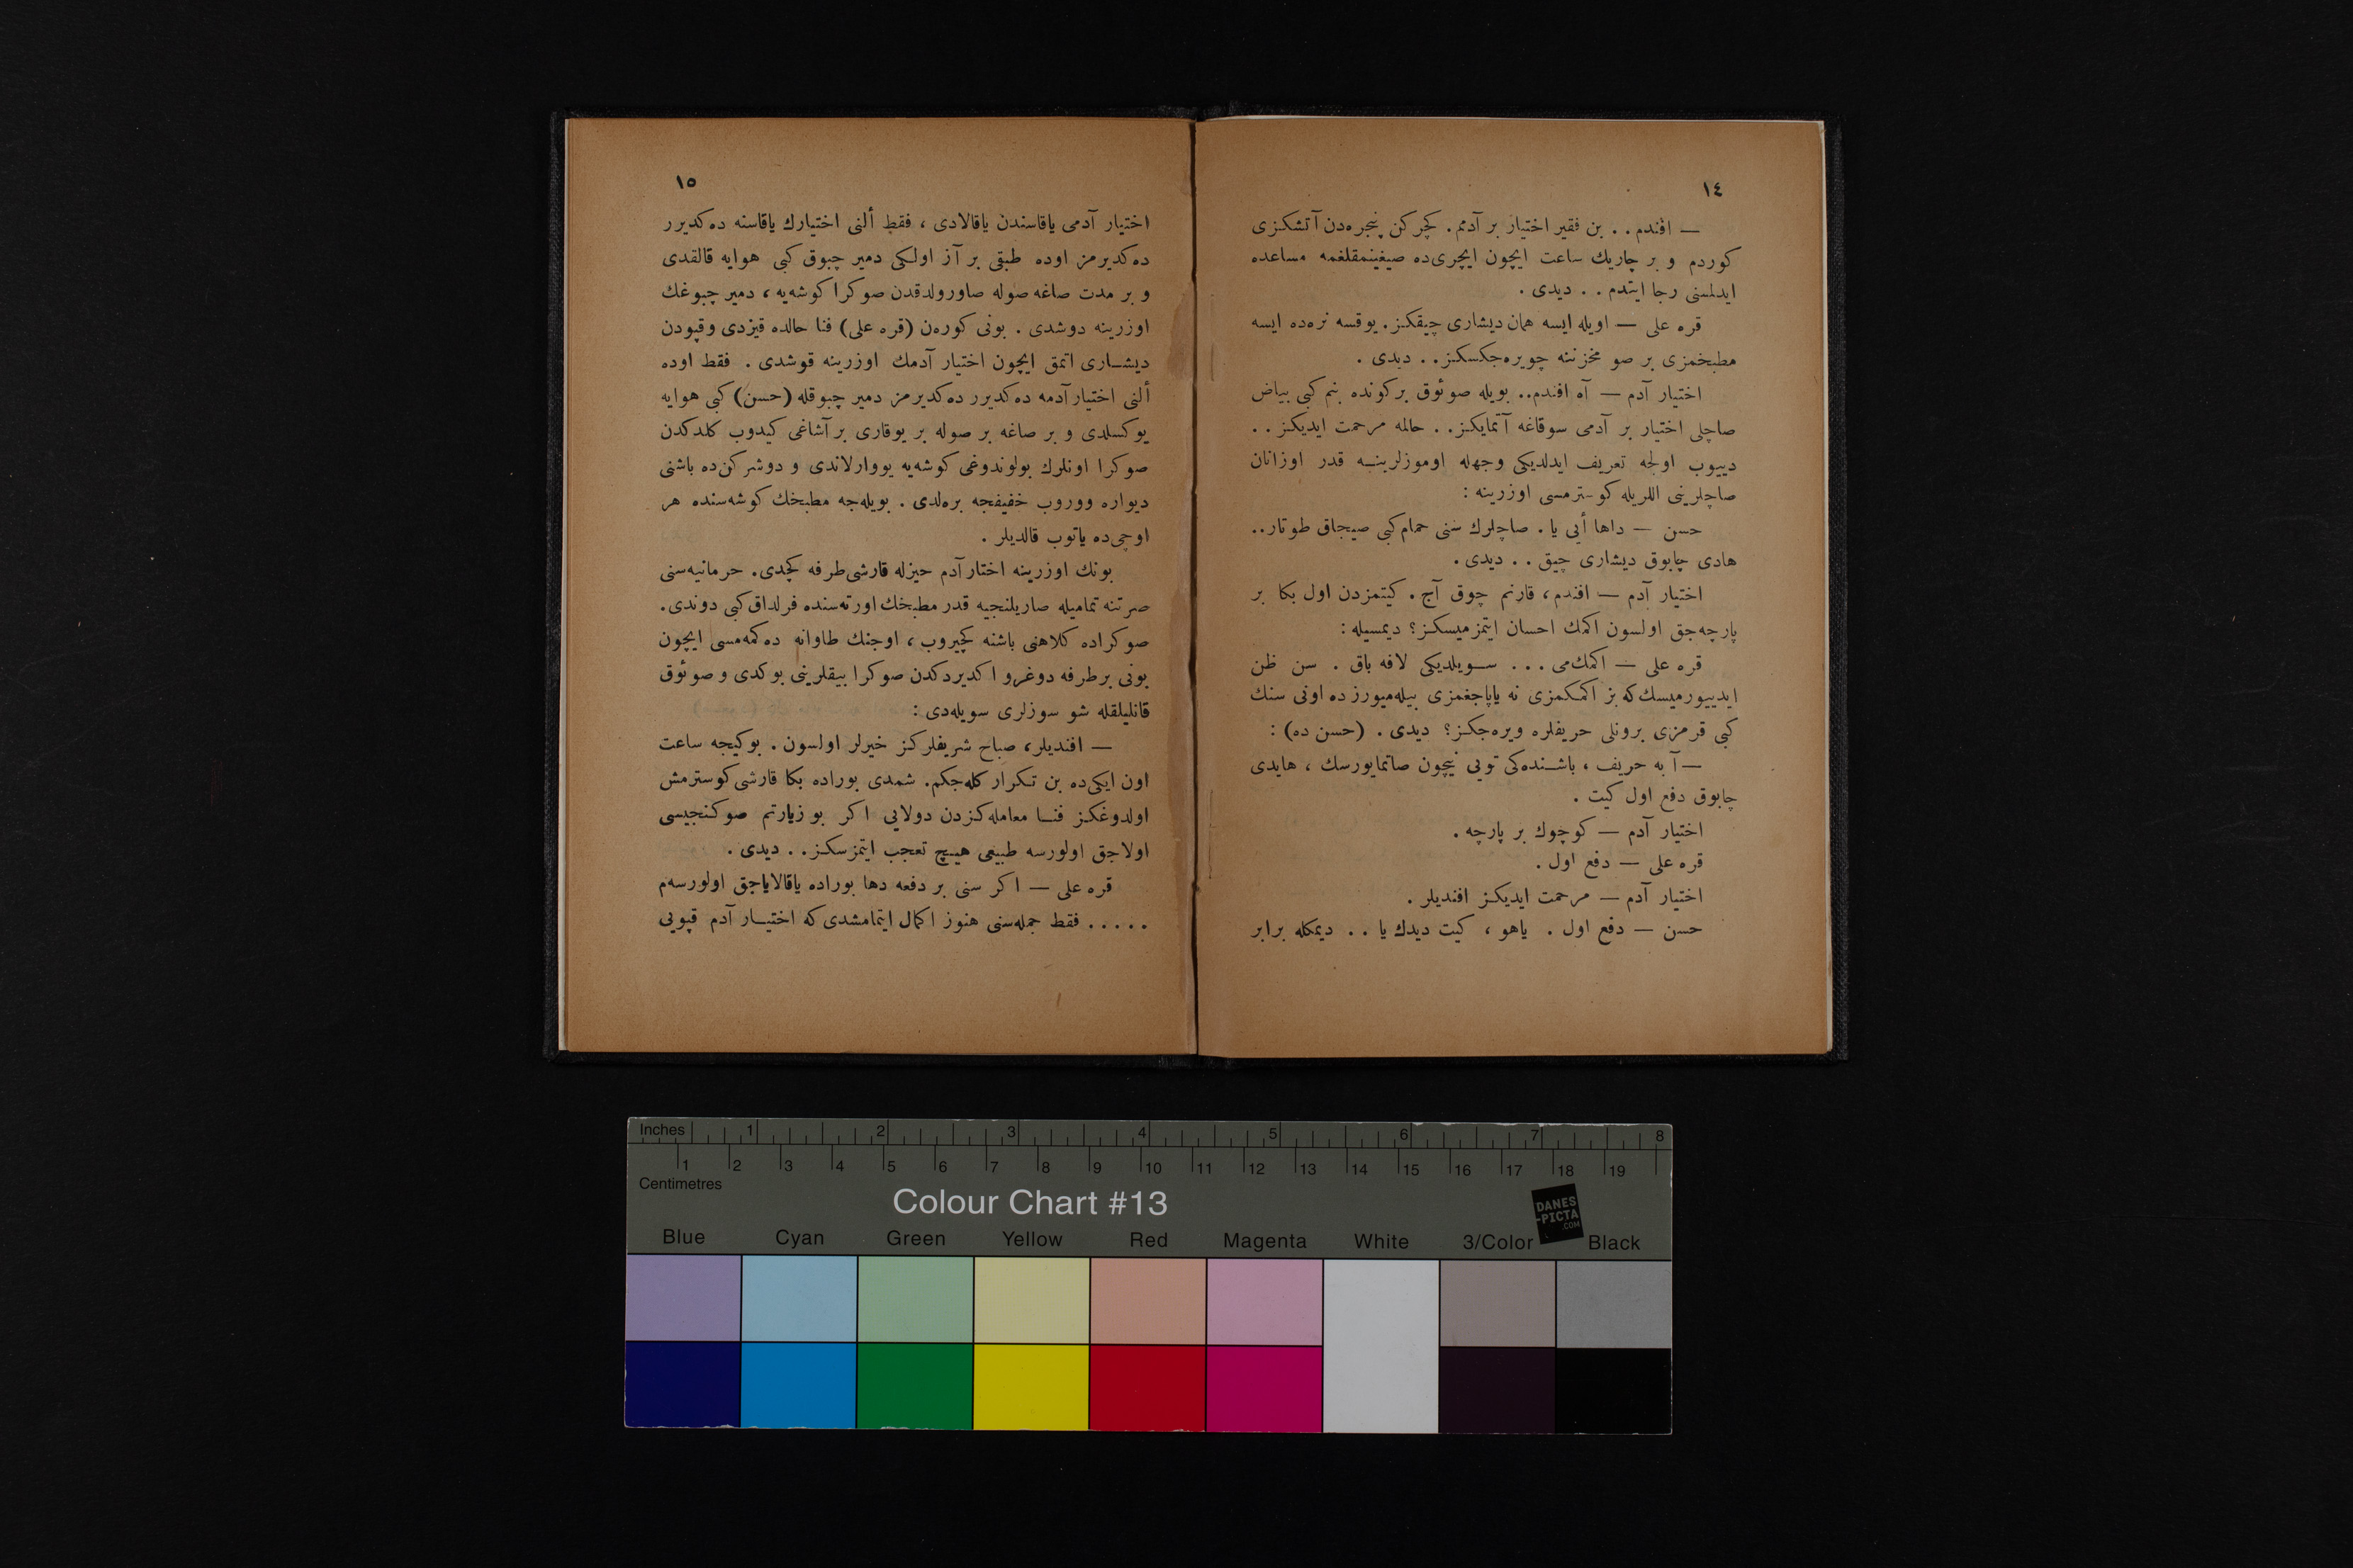 ١٤
— افندم . . بن فقیر اختیار بر آدمم . کچرکن پنجره‌دن آتشکزی
کوردم و بر چاریك ساعت ایچون ایچری‌ده صیغینمقلغمه مساعده
ایدلمسنی رجا ایتدم . . دیدی .
قره علی — اویله ایسه همان دیشاری چیقکز . یوقسه نره‌ده ایسه
مطبخمزی بر صو مخزننه چویره‌جکسکز . . دیدی .
اختیار آدم — آه افندم.. بویله صوئوق برکونده بنم کبی بیاض
صاچلی اختیار بر آدمی سوقاغه آتمایکز . . حالمه مرحمت ایدیکز . .
دییوب اولجه تعریف ایدلدیکی وجهله اوموزلرینه قدر اوزانان
صاچلرینی اللریله کوسترمسی اوزرینه :
حسن — داها أیی یا . صاچلرك سنی حمام کبی صیجاق طوتار..
هادی چابوق دیشاری چیق . . دیدی .
اختیار آدم — افندم ، قارنم چوق آج . کیتمزدن اول بکا بر
پارچه‌جق اولسون اکمك احسان ایتمزمیسکز؟ دیمسیله :
قره علی — اکمك‌می . . . سویلدیکی لافه باق . سن ظن
ایدییورمیسك‌که بز اکمکمزی نه یاپاجغمزی بیله‌میورزده اونی سنك
کبی قرمزی برونلی حریفلره ویره‌جکز؟ دیدی . (حسن ده) :
— آ به حریف ، باشنده‌کی تویی نیچون صاتمایورسك ، هایدی
چابوق دفع اول کیت .
اختیار آدم — کوچوك بر پارچه .
قره علی — دفع اول .
اختیار آدم — مرحمت ایدیکز افندیلر .
حسن — دفع اول . یاهو ، کیت دیدك یا . . دیمکله برابر
١٥
اختیار آدمی یاقاسندن یاقالادی ، فقط ألنی اختیارك یاقاسنه ده‌کدیرر
ده‌کدیرمز اوده طبقی بر آز اولکی دمیر چبوق کبی هوایه قالقدی
و بر مدت صاغه صوله صاورولدقدن صوکرا کوشه‌یه ، دمیر چبوغك
اوزرینه دوشدی . بونی کوره‌ن (قره علی) فنا حالده قیزدی وقپودن
دیشاری اتمق ایچون اختیار آدمك اوزرینه قوشدی . فقط اوده
ألنی اختیار آدمه ده‌کدیرر ده‌کدیرمز دمیر چبوقله (حسن) کبی هوایه
یوکسلدی و بر صاغه بر صوله بر یوقاری بر آشاغی کیدوب کلدکدن
صوکرا اونلرك بولوندوغی کوشه‌یه یووارلاندی و دوشرکن‌ده باشنی
دیواره ووروب خفیفجه بره‌لدی . بویله‌جه مطبخك کوشه‌سنده هر
اوچی‌ده یاتوب قالدیلر .
بونك اوزرینه اختار آدم حیزله قارشی‌طرفه کچدی . حرمانیه‌سنی
صرتنه تمامیله صاریلنجیه قدر مطبخك اورته‌سنده فرلداق کبی دوندی.
صوکراده کلاهنی باشنه کچیروب ، اوجنك طاوانه ده‌کمه‌مسی ایچون
بونی برطرفه دوغرو اکدیردکدن صوکرا بیقلرینی بوکدی و صوئوق
قانلیلقله شو سوزلری سویله‌دی :
— افندیلر، صباح شریفلرکز خیرلر اولسون . بوکیجه ساعت
اون ایکی‌ده بن تکرار کله‌جکم. شمدی بوراده بکا قارشی کوسترمش
اولدوغکز فنا معامله‌کزدن دولایی اکر بو زیارتم صوکنجیسی
اولاجق اولورسه طبیعی هیچ تعجب ایتمزسکز . . دیدی .
قره علی — اکر سنی بر دفعه دها بوراده یاقالایاجق اولورسه‌م
. . . . . فقط جمله‌سنی هنوز اکمال ایتمامشدی‌که اختیار آدم قپویی
Inches 1 2 3 4 5 6 7 8
1 2 3 4 5 6 7 8 9 10 11 12 13 14 15 16 17 18 19
Centimetres
Colour Chart #13
DANES
-PICTA
.COM
Blue Cyan Green Yellow Red Magenta White 3/Color Black